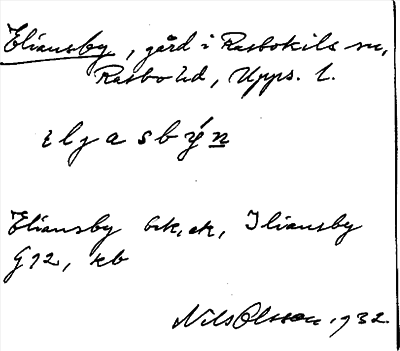 Eliansby, gård i Rasbokils sn,
Rasbo hd, Upps. l.
ɛljasbýn
Eliansby ek, Iliansby
G12, kb
Nils Olsson 1932.